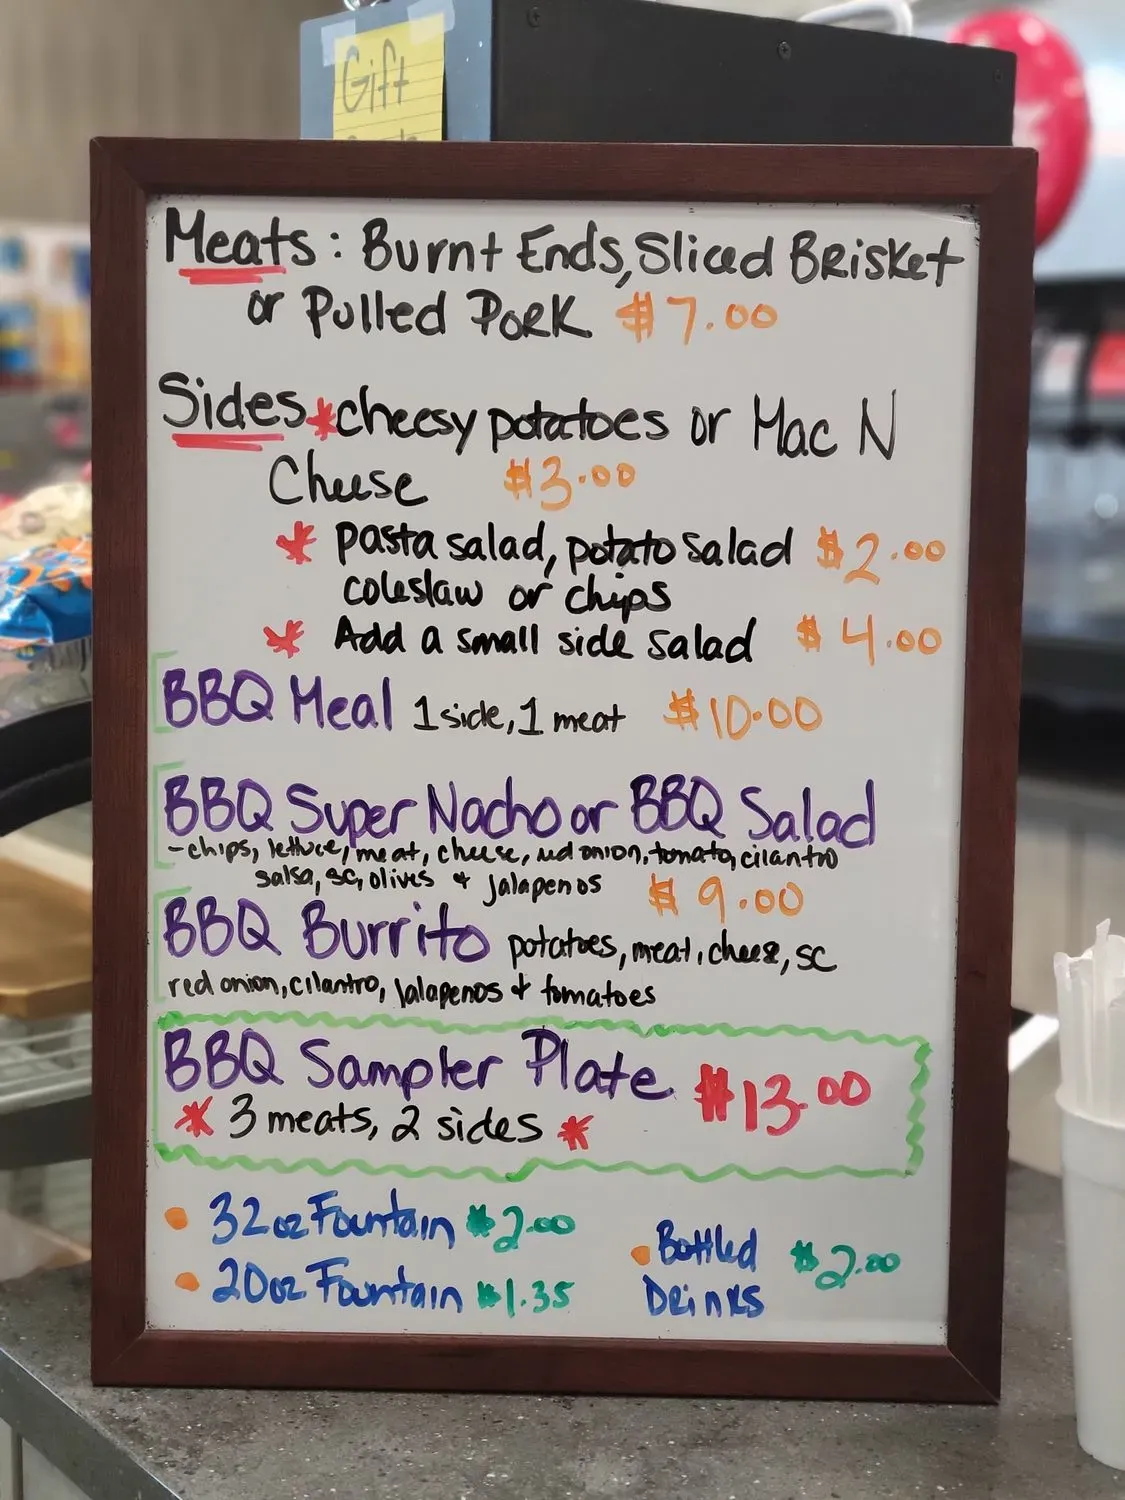 Gift
Meats: Burnt Ends, Sliced Brisket
or Pulled Pork $7.00
Sides *cheesy potatoes or Mac N
Cheese $3.00
* pasta salad, potato salad $2.00
coleslaw or chips
* Add a small side salad $4.00
BBQ Meal 1 side, 1 meat $10.00
BBQ Super Nacho or BBQ Salad
- chips, lettuce, meat, cheese, red onion, tomato, cilantro
salsa, sc, olives + jalapenos $9.00
BBQ Burrito potatoes, meat, cheese, sc
red onion, cilantro, Jalapenos + tomatoes
BBQ Sampler Plate $13.00
* 3 meats, 2 sides *
• 32oz Fountain $2.00
• 20oz Fountain $1.35
• Bottled $2.00
Drinks